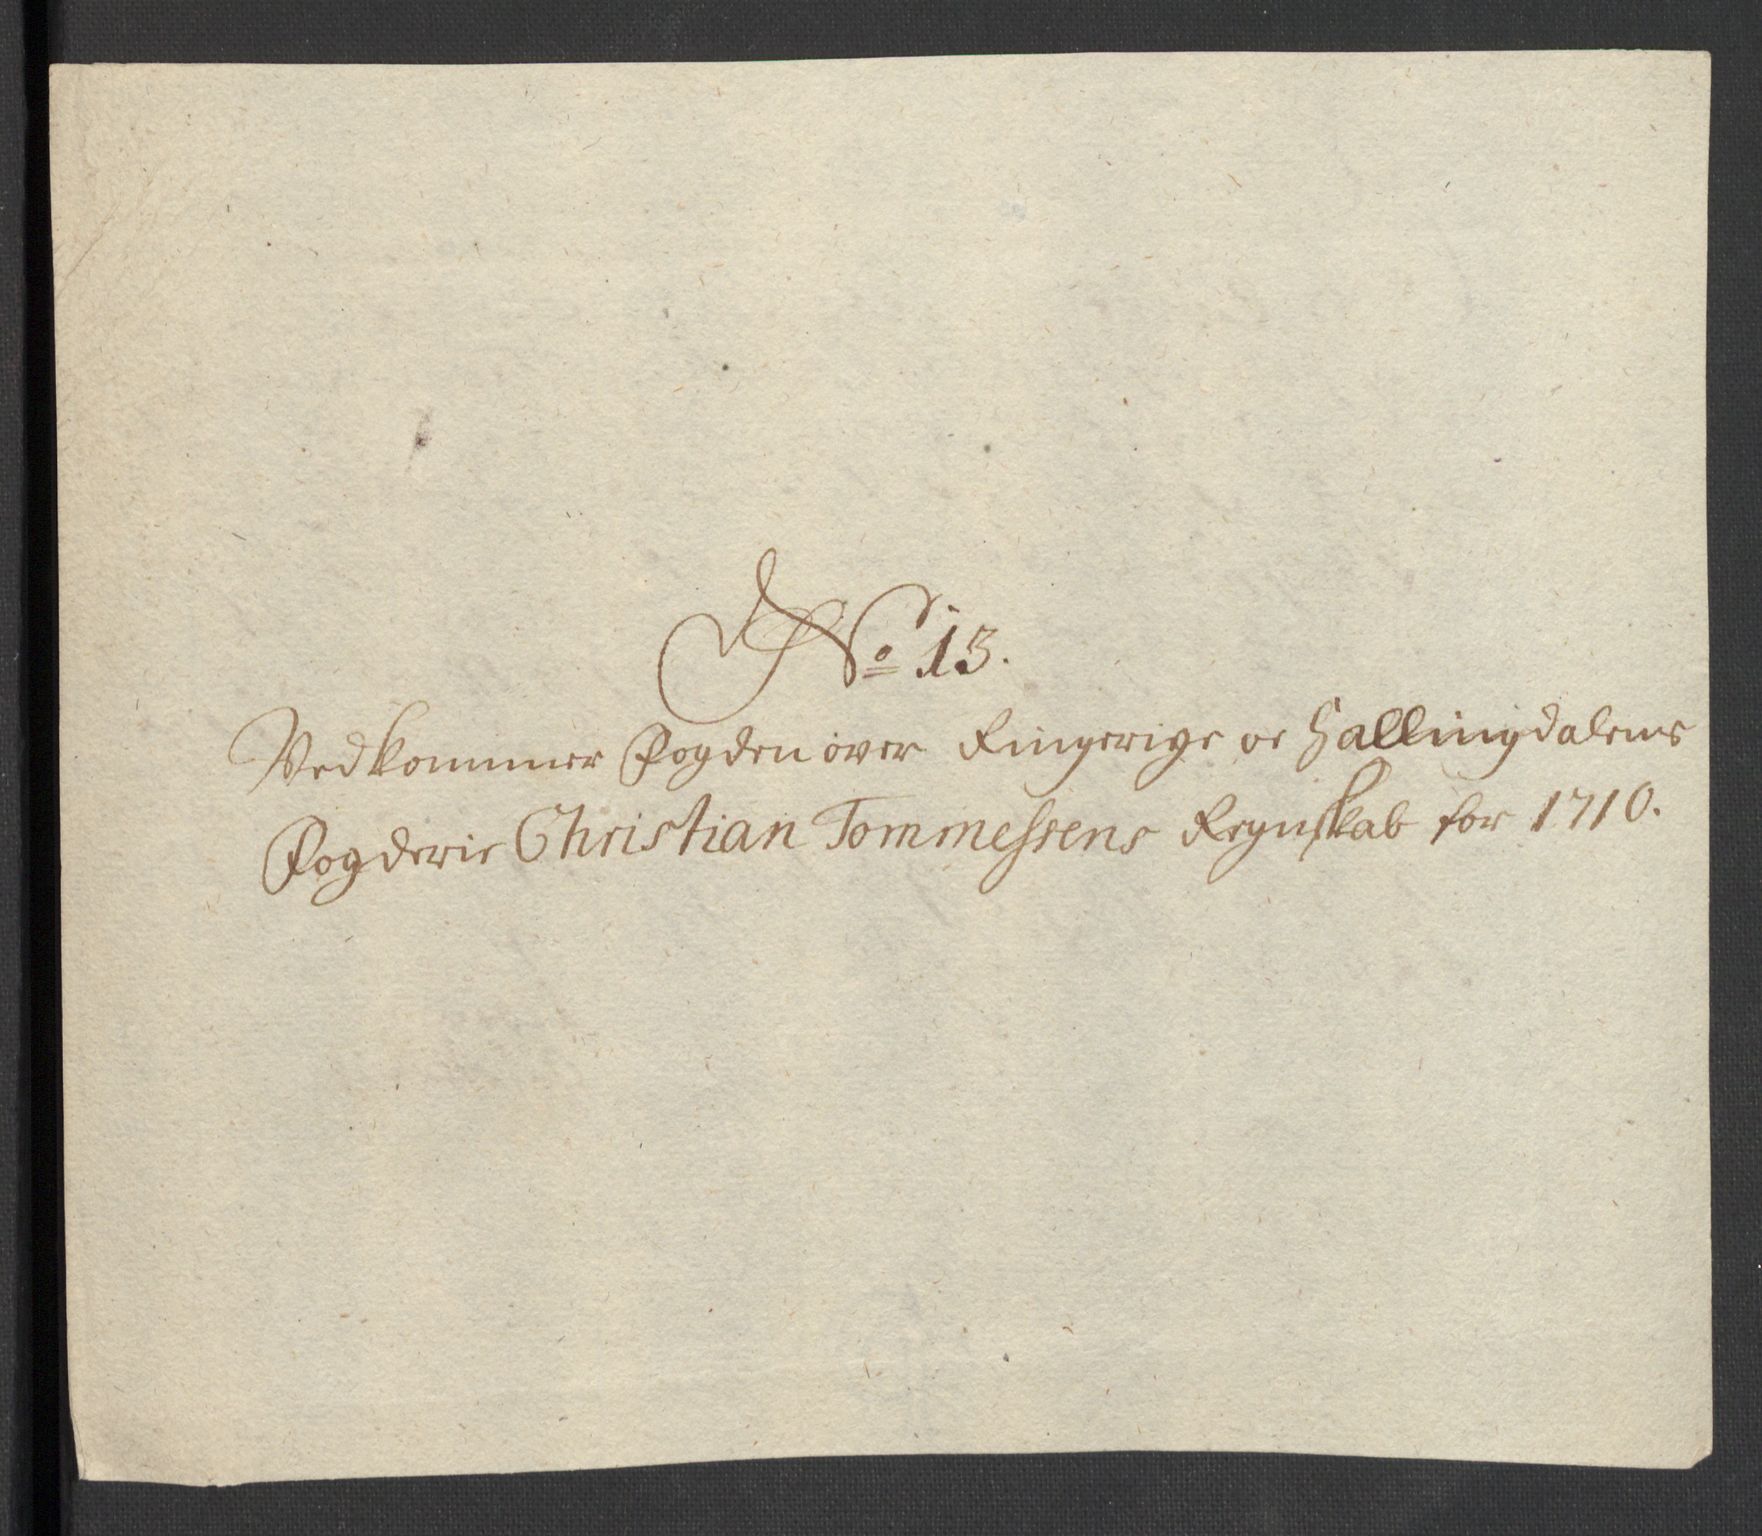 No 13.
Vedkommer Fogden over Ringerige oc Hallingdalens
Fogderie Christian Tommessens Regnskab for 1710.